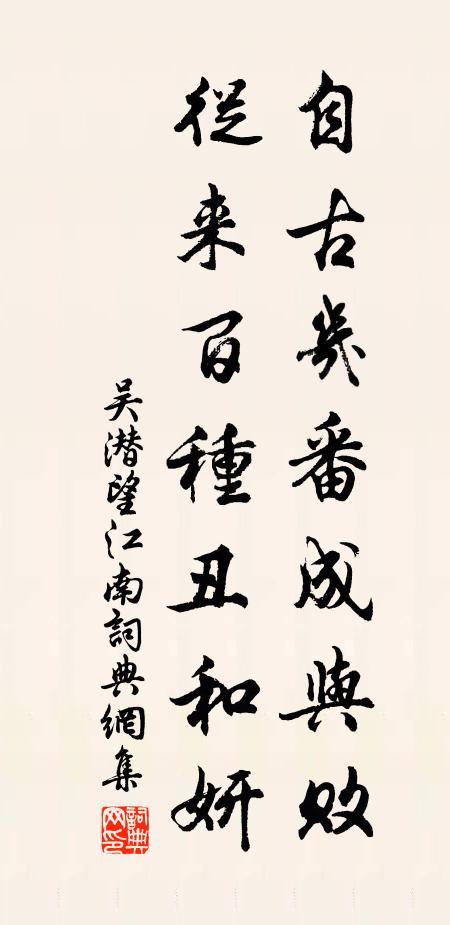 自古幾番成與敗
從来百種丑和妍
吴潜望江南詞典網集
詞典網印